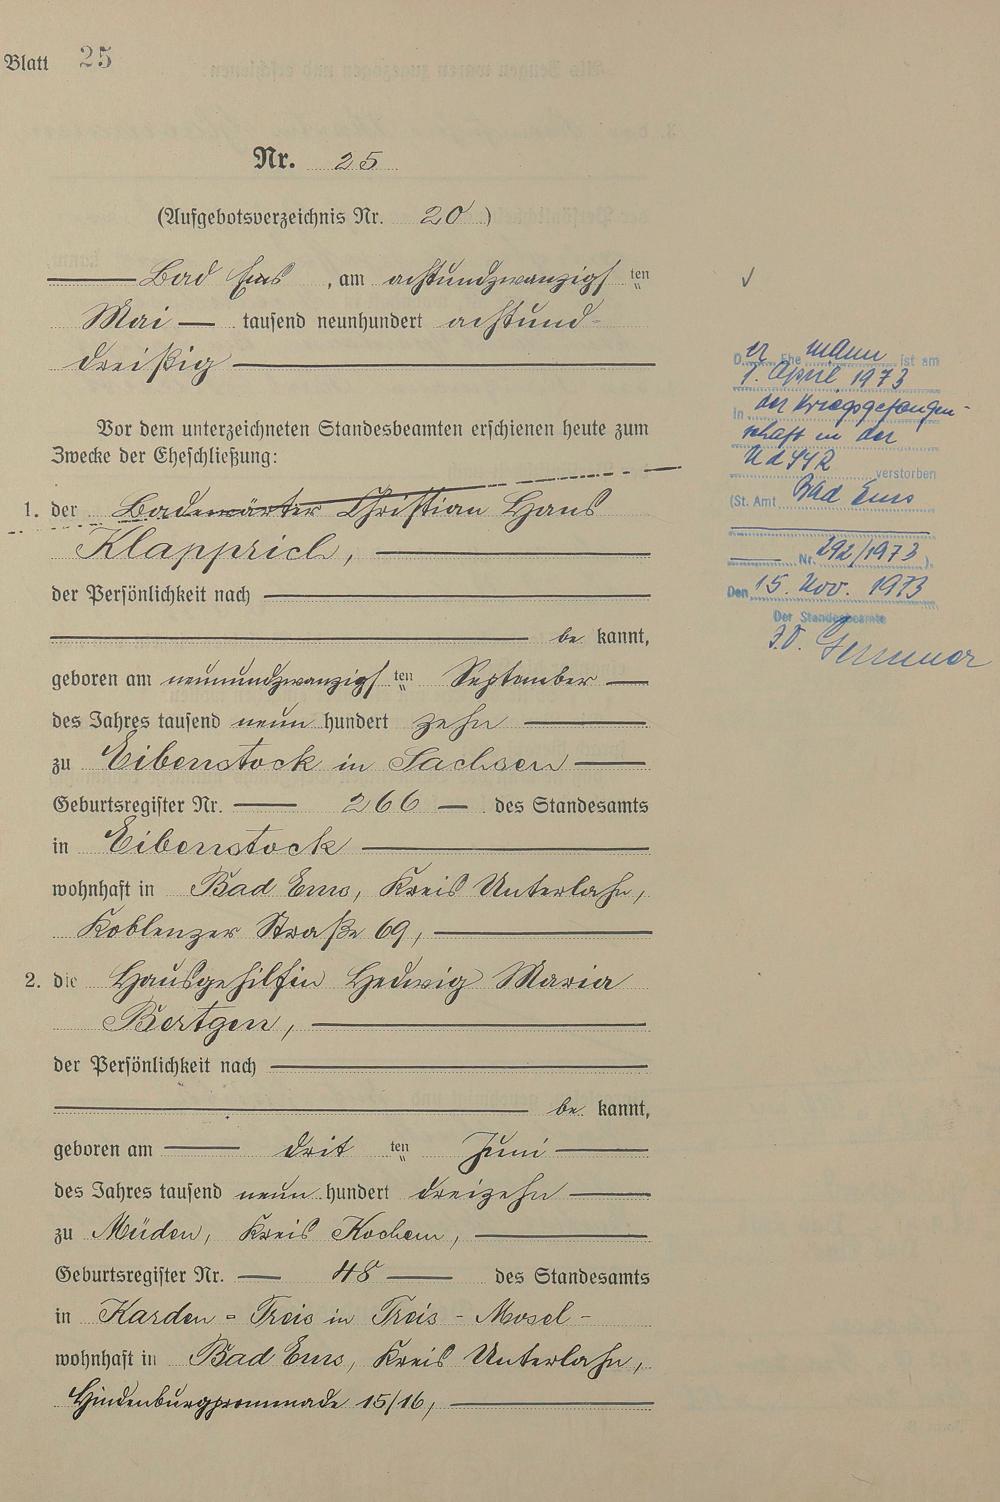 Blatt 25
Nr. 25
(Aufgebotsverzeichnis Nr. 20)
Bad Ems, am achtundzwanzigsten
Mai tausend neunhundert achtund-
dreißig
Vor dem unterzeichneten Standesbeamten erschienen heute zum
Zwecke der Eheschließung:
1. der Badewärter Christian Hans
Klapprich,
der Persönlichkeit nach
be kannt,
geboren am neunundzwanzigsten September
des Jahres tausend neun hundert zehn
zu Eibenstock in Sachsen
Geburtsregister Nr. 266 des Standesamts
in Eibenstock
wohnhaft in Bad Ems, Kreis Unterlahn,
Koblenzer Straße 69,
2. die Hausgehilfin Hedwig Maria
Bertgen,
der Persönlichkeit nach
be kannt,
geboren am dritten Juni
des Jahres tausend neun hundert dreizehn
zu Müden, Kreis Kochem,
Geburtsregister Nr. 48 des Standesamts
in Karden = Treis in Treis - Mosel -
wohnhaft in Bad Ems, Kreis Unterlahn,
Hindenburgpromenade 15/16,
D er Ehe mann ist am
1. April 1973
in der Kriegsgefangen-
schaft in der
UdSSR verstorben
(St. Amt Bad Ems
Nr. 292/1973).
Den 15. Nov. 1973
Der Standesbeamte
I.V.